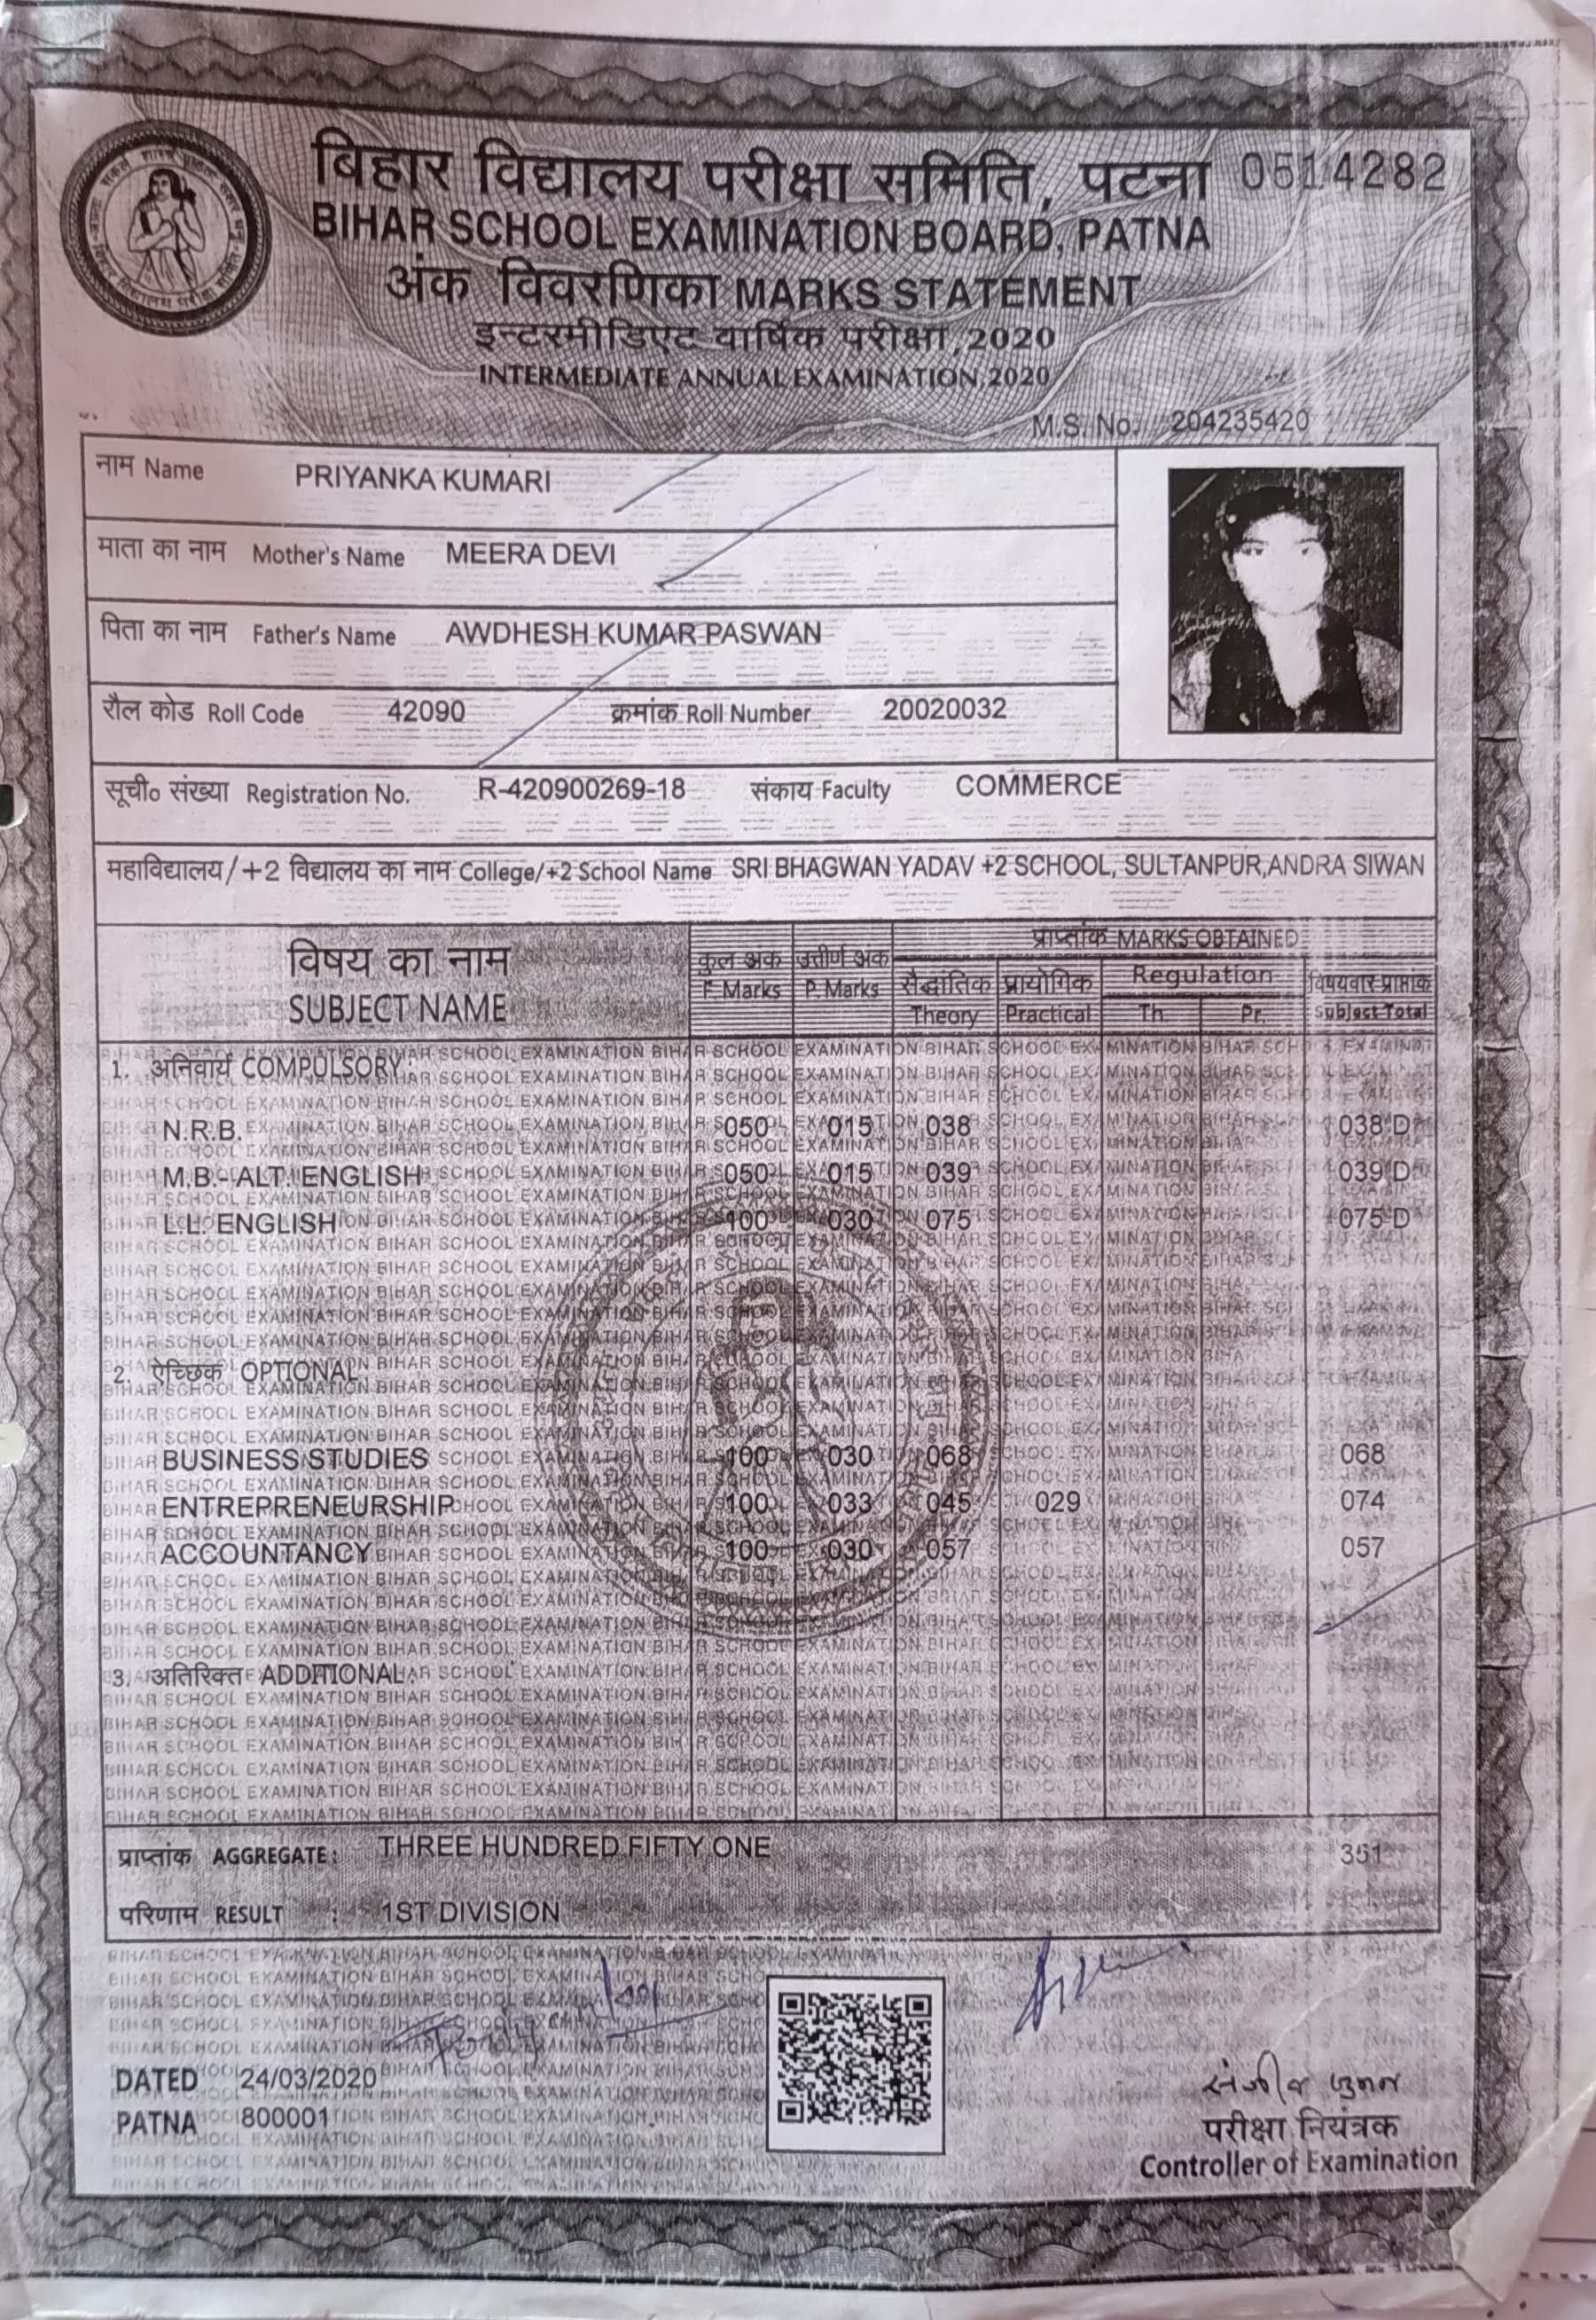 बिहार विद्यालय परीक्षा समिति, पटना 0514282
BIHAR SCHOOL EXAMINATION BOARD, PATNA
अंक विवरणिका MARKS STATEMENT
इन्टरमीडिएट वार्षिक परीक्षा, 2020
INTERMEDIATE ANNUAL EXAMINATION, 2020
M.S. No. 204235420
नाम Name PRIYANKA KUMARI
माता का नाम Mother's Name MEERA DEVI
पिता का नाम Father's Name AWDHESH KUMAR PASWAN
रौल कोड Roll Code 42090 क्रमांक Roll Number 20020032
सूची० संख्या Registration No. R-420900269-18 संकाय Faculty COMMERCE
महाविद्यालय/+2 विद्यालय का नाम College/+2 School Name SRI BHAGWAN YADAV +2 SCHOOL, SULTANPUR,ANDRA SIWAN
विषय का नाम कुल अंक उत्तीर्ण अंक प्राप्तांक MARKS OBTAINED
SUBJECT NAME F. Marks P. Marks सैद्धांतिक प्रायोगिक Regulation विषयवार प्राप्तांक
Theory Practical Th. Pr. Subject Total
1. अनिवार्य COMPULSORY:
N.R.B. 050 015 038 038 D
M.B.- ALT. ENGLISH 050 015 039 039 D
L.L. ENGLISH 100 030 075 075 D
2. ऐच्छिक OPTIONAL
BUSINESS STUDIES 100 030 068 068
ENTREPRENEURSHIP 100 033 045 029 074
ACCOUNTANCY 100 030 057 057
3. अतिरिक्त ADDITIONAL:
प्राप्तांक AGGREGATE: THREE HUNDRED FIFTY ONE 351
परिणाम RESULT : 1ST DIVISION
DATED 24/03/2020
PATNA 800001
परीक्षा नियंत्रक
Controller of Examination